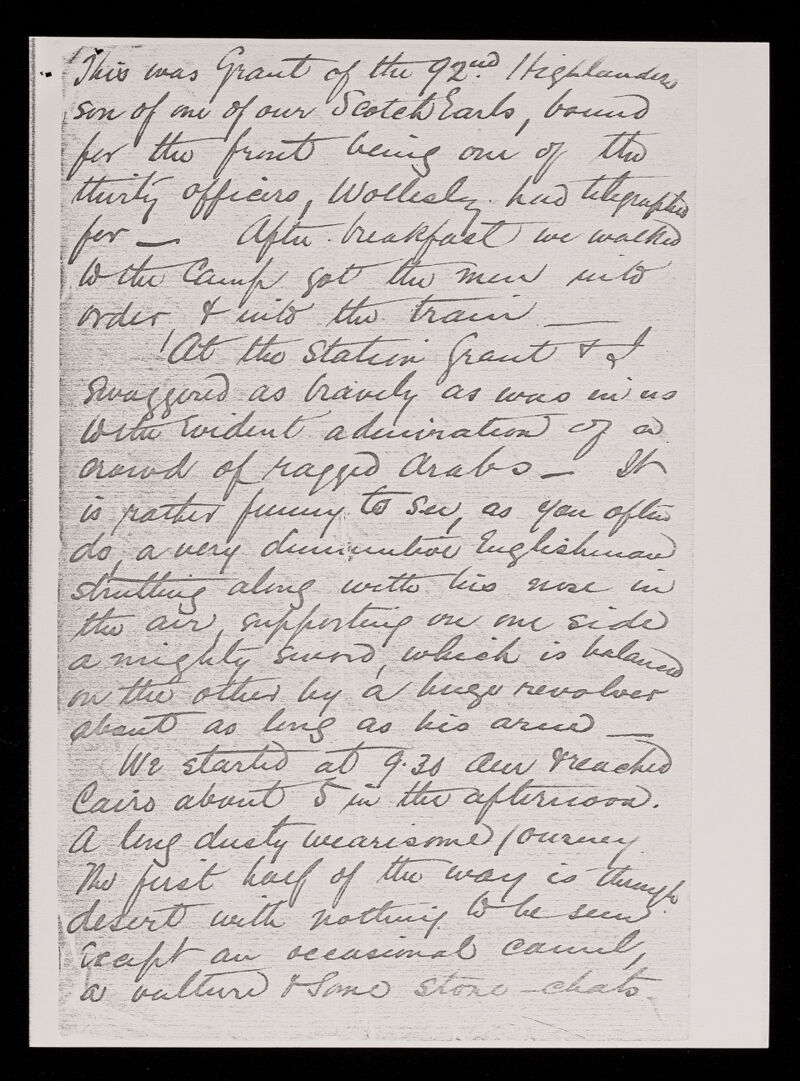 'This was Grant of the 92nd. Highlanders
son of one of our Scotch Earls, bound
for the front being one of the
thirty officers, Wollesley had telegraphed
for — After breakfast we walked
to the Camp got the men into
order & into the train —
'At the Station Grant & I
swaggered as bravely as was in us
with evident admiration of a
crowd of ragged Arabs — It
is rather funny to see, as you often
do, a very diminutive Englishman
strutting along with his nose in
the air, supporting on one side
a mighty sword, which is balanced
on the other by a huge revolver
about as long as his arm —
We started at 9.30 am & reached
Cairo about 5 in the afternoon.
A long dusty wearisome journey
The first half of the way is through
desert with nothing to be seen
except an occasional camel,
a vulture & some stone-chats